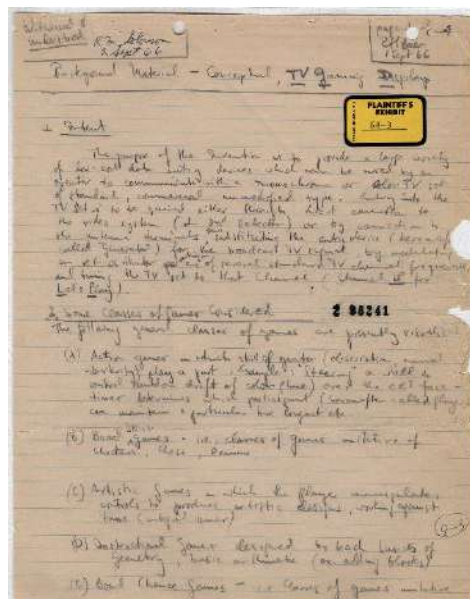 Witnessed &
understood
2 Sept 66
1 Sept 66
Background Material - Conceptual, TV Gaming Display
PLAINTIFF'S
EXHIBIT
1. Intent
The purpose of the invention is to provide a large variety
of low cost data entry devices which can be used by an
operator to communicate with a monochrome or color TV set
of standard, commercial, unmodified type. Entry into the
TV set is to be gained either through direct connection to
the video system (at 2nd detector) or by connection to
the antenna terminals, substituting the entry device
called Generator) for the broadcast TV signal by modulating
an RF oscillator of several standard TV channel frequencies
and tuning the TV set to that channel (Channel LP for
Let's Play).
2. Some Classes of Games Considered
2 98241
The following general classes of games are presently
(A) Action games in which skill of operator (observation, manual
dexterity) play a part. Example: "Steering" a wheel to
control random drift of color (hue) over the CRT face -
timer determines which participant (hereinafter called player)
can maintain a particular hue longest etc.
(B) Board Games - i.e. classes of games imitative of
checkers, chess,
(C) Artistic Games in which the player manipulates
controls to produce artistic designs, working against
time
(D) Instructional Games designed to teach basics of
Geometry, basic arithmetic (on adding blocks)
(E) Board Chance Games - i.e. classes of games imitative